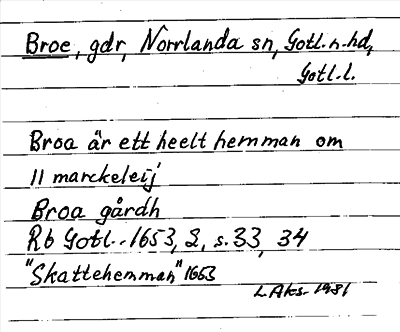 Broe, gdr, Norrlanda sn, Gotl. n. hd,
Gotl. l.
Broa är ett heelt hemman om
11 marckeleij
Broa gårdh
Rb Gotl. 1653, 2, s. 33, 34
"Skattehemman" 1653
L. Aks. 1981